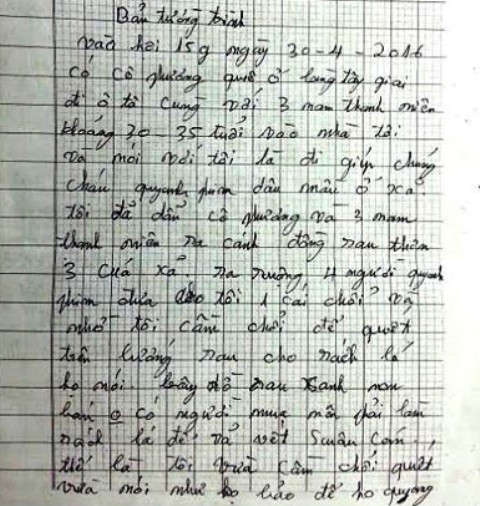 Bản tường trình
vào hồi 15g ngày 30-4-2016
có cô phương quê ở làng tây giai
đi ô tô cùng với 3 nam thanh niên
khoảng 30-35 tuổi vào nhà tôi
và nói với tôi là đi giúp chúng
cháu quyanh phim dâu mầu ở xã
tôi đã dẫn cô phương và 3 nam
thanh niên ra cánh đồng rau thôn
3 của xã. ra ruộng 4 người quyanh
phim đưa cho tôi 1 cái chổi và
nhờ tôi cầm chổi để quét
trên luống rau cho rách lá
họ nói. bây giờ rau xanh non
bán o có người mua nên phải làm
rách lá để rả vết sâu cắn.
thế là tôi vừa cầm chổi quét
vừa nói như họ bảo để họ quyang